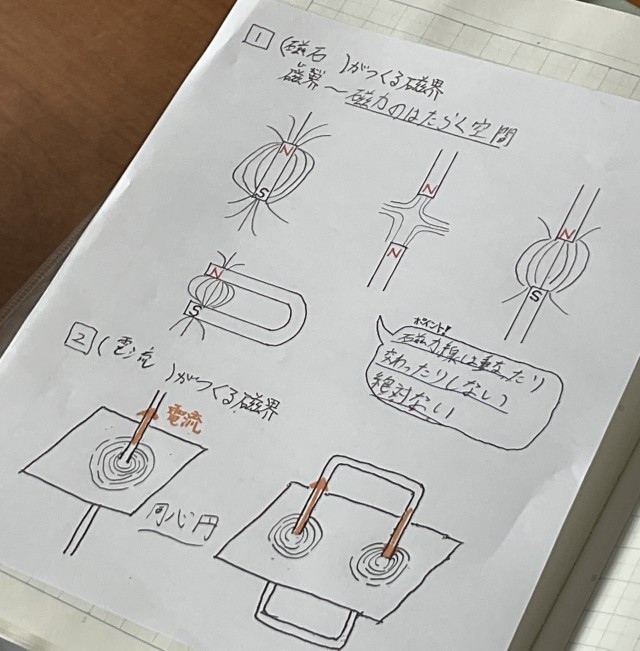 1 (磁石)がつくる磁界
磁界～磁力のはたらく空間
N
S
N
N
N
S
N
S
ポイント!
磁力線は重なったり
交わったりしない
絶対ない
2 (電流)がつくる磁界
電流
同心円